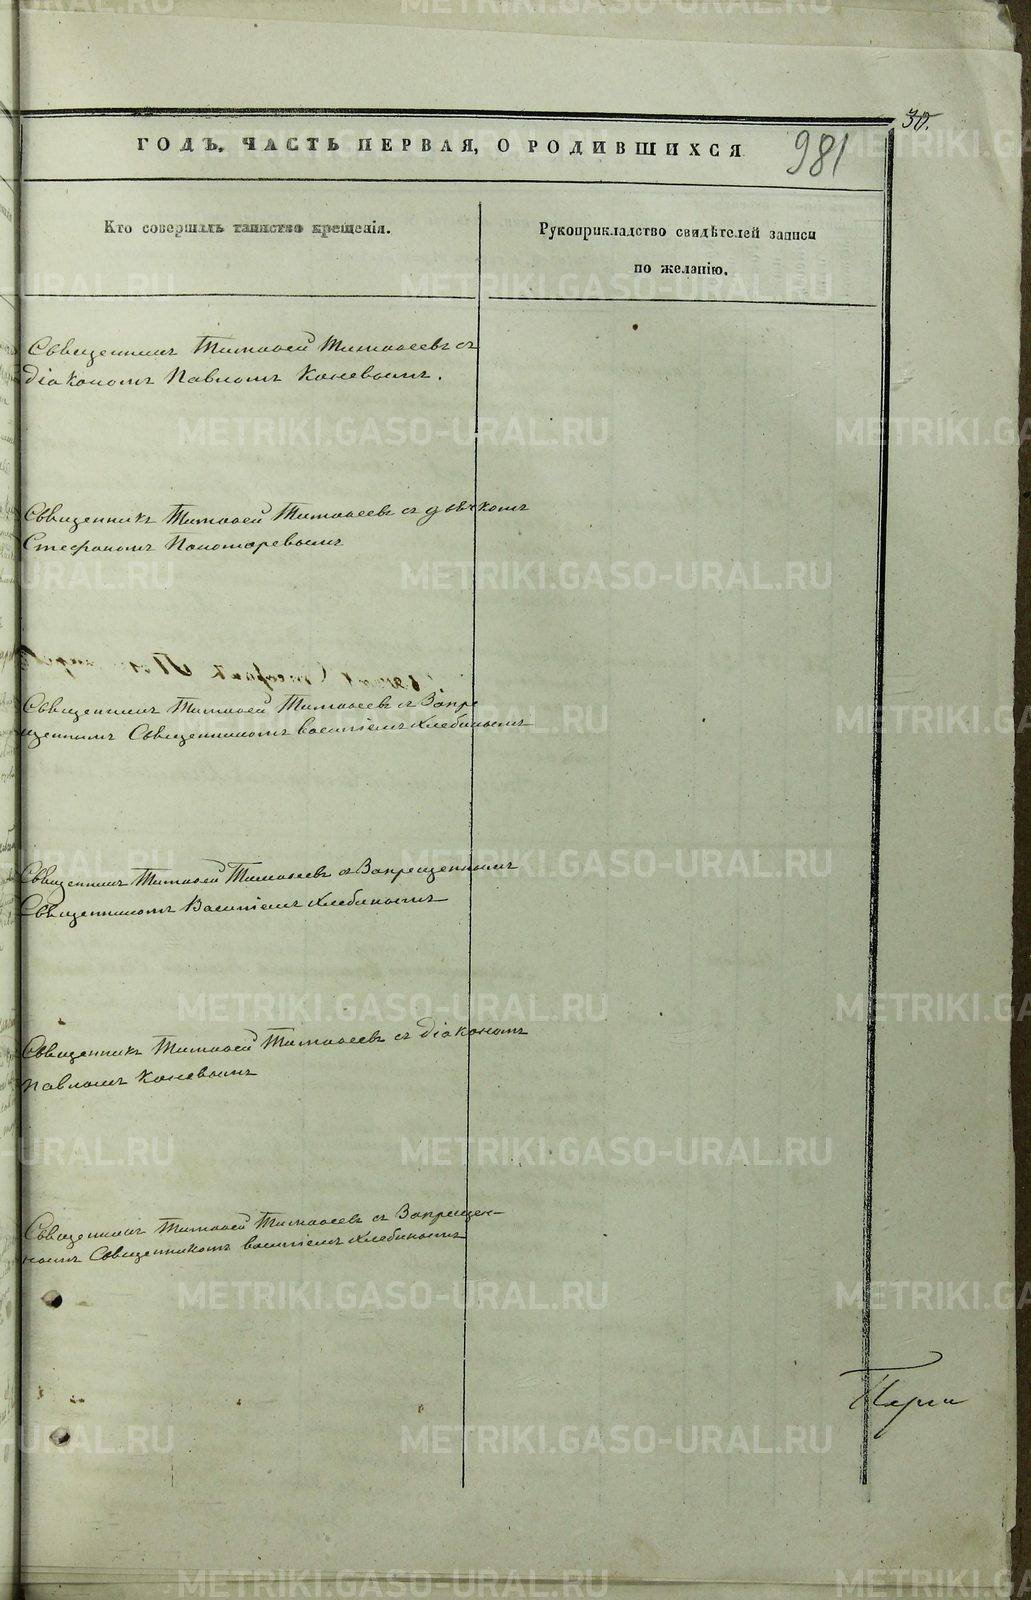 30.
ГОДЪ. ЧАСТЬ ПЕРВАЯ, О РОДИВШИХСЯ
981
Кто совершалъ таинство крещенія.
Рукоприкладство свидѣтелей записи
по желанію.
Священникъ Тимофей Тимофеевъ съ
діакономъ Павломъ Коневымъ.
Священникъ Тимофей Тимофеевъ съ дьячкомъ
Стефаномъ Пономаревымъ
Священникъ Тимофей Тимофеевъ съ Запре
щеннымъ Священникомъ Василіемъ Хлебинымъ
Священникъ Тимофей Тимофеевъ съ Запрещеннымъ
Священникомъ Василіемъ Хлебинымъ
Священникъ Тимофей Тимофеевъ съ діакономъ
Павломъ Коневымъ
Священникъ Тимофей Тимофеевъ съ Запрещен-
нымъ Священникомъ Василіемъ Хлебинымъ
METRIKI.GASO-URAL.RU